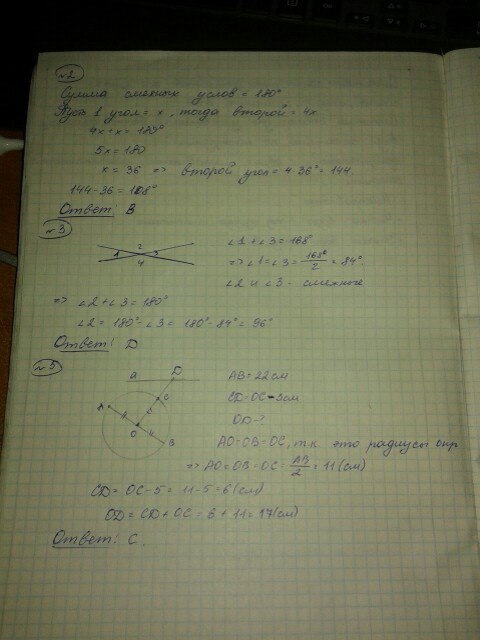 №2
Сумма смежных углов = 180°
Пусть 1 угол = x, тогда второй = 4x
4x+x = 180°
5x = 180
x = 36 => второй угол = 4·36° = 144.
144-36 = 108°
Ответ: B
№3
1 2 3 4
∠1+∠3 = 168°
=> ∠1=∠3 = 168°/2 = 84°.
∠2 и ∠3 - смежные
=> ∠2+∠3 = 180°
∠2 = 180°-∠3 = 180°-84° = 96°
Ответ: D
№5
a D
A C O B
AB = 22см
CD=OC-5см
OD-?
AO=OB=OC, т.к. это радиусы окр
=> AO=OB=OC = AB/2 = 11(см)
CD = OC-5 = 11-5 = 6(см)
OD = CD+OC = 6+11 = 17(см)
Ответ: C.